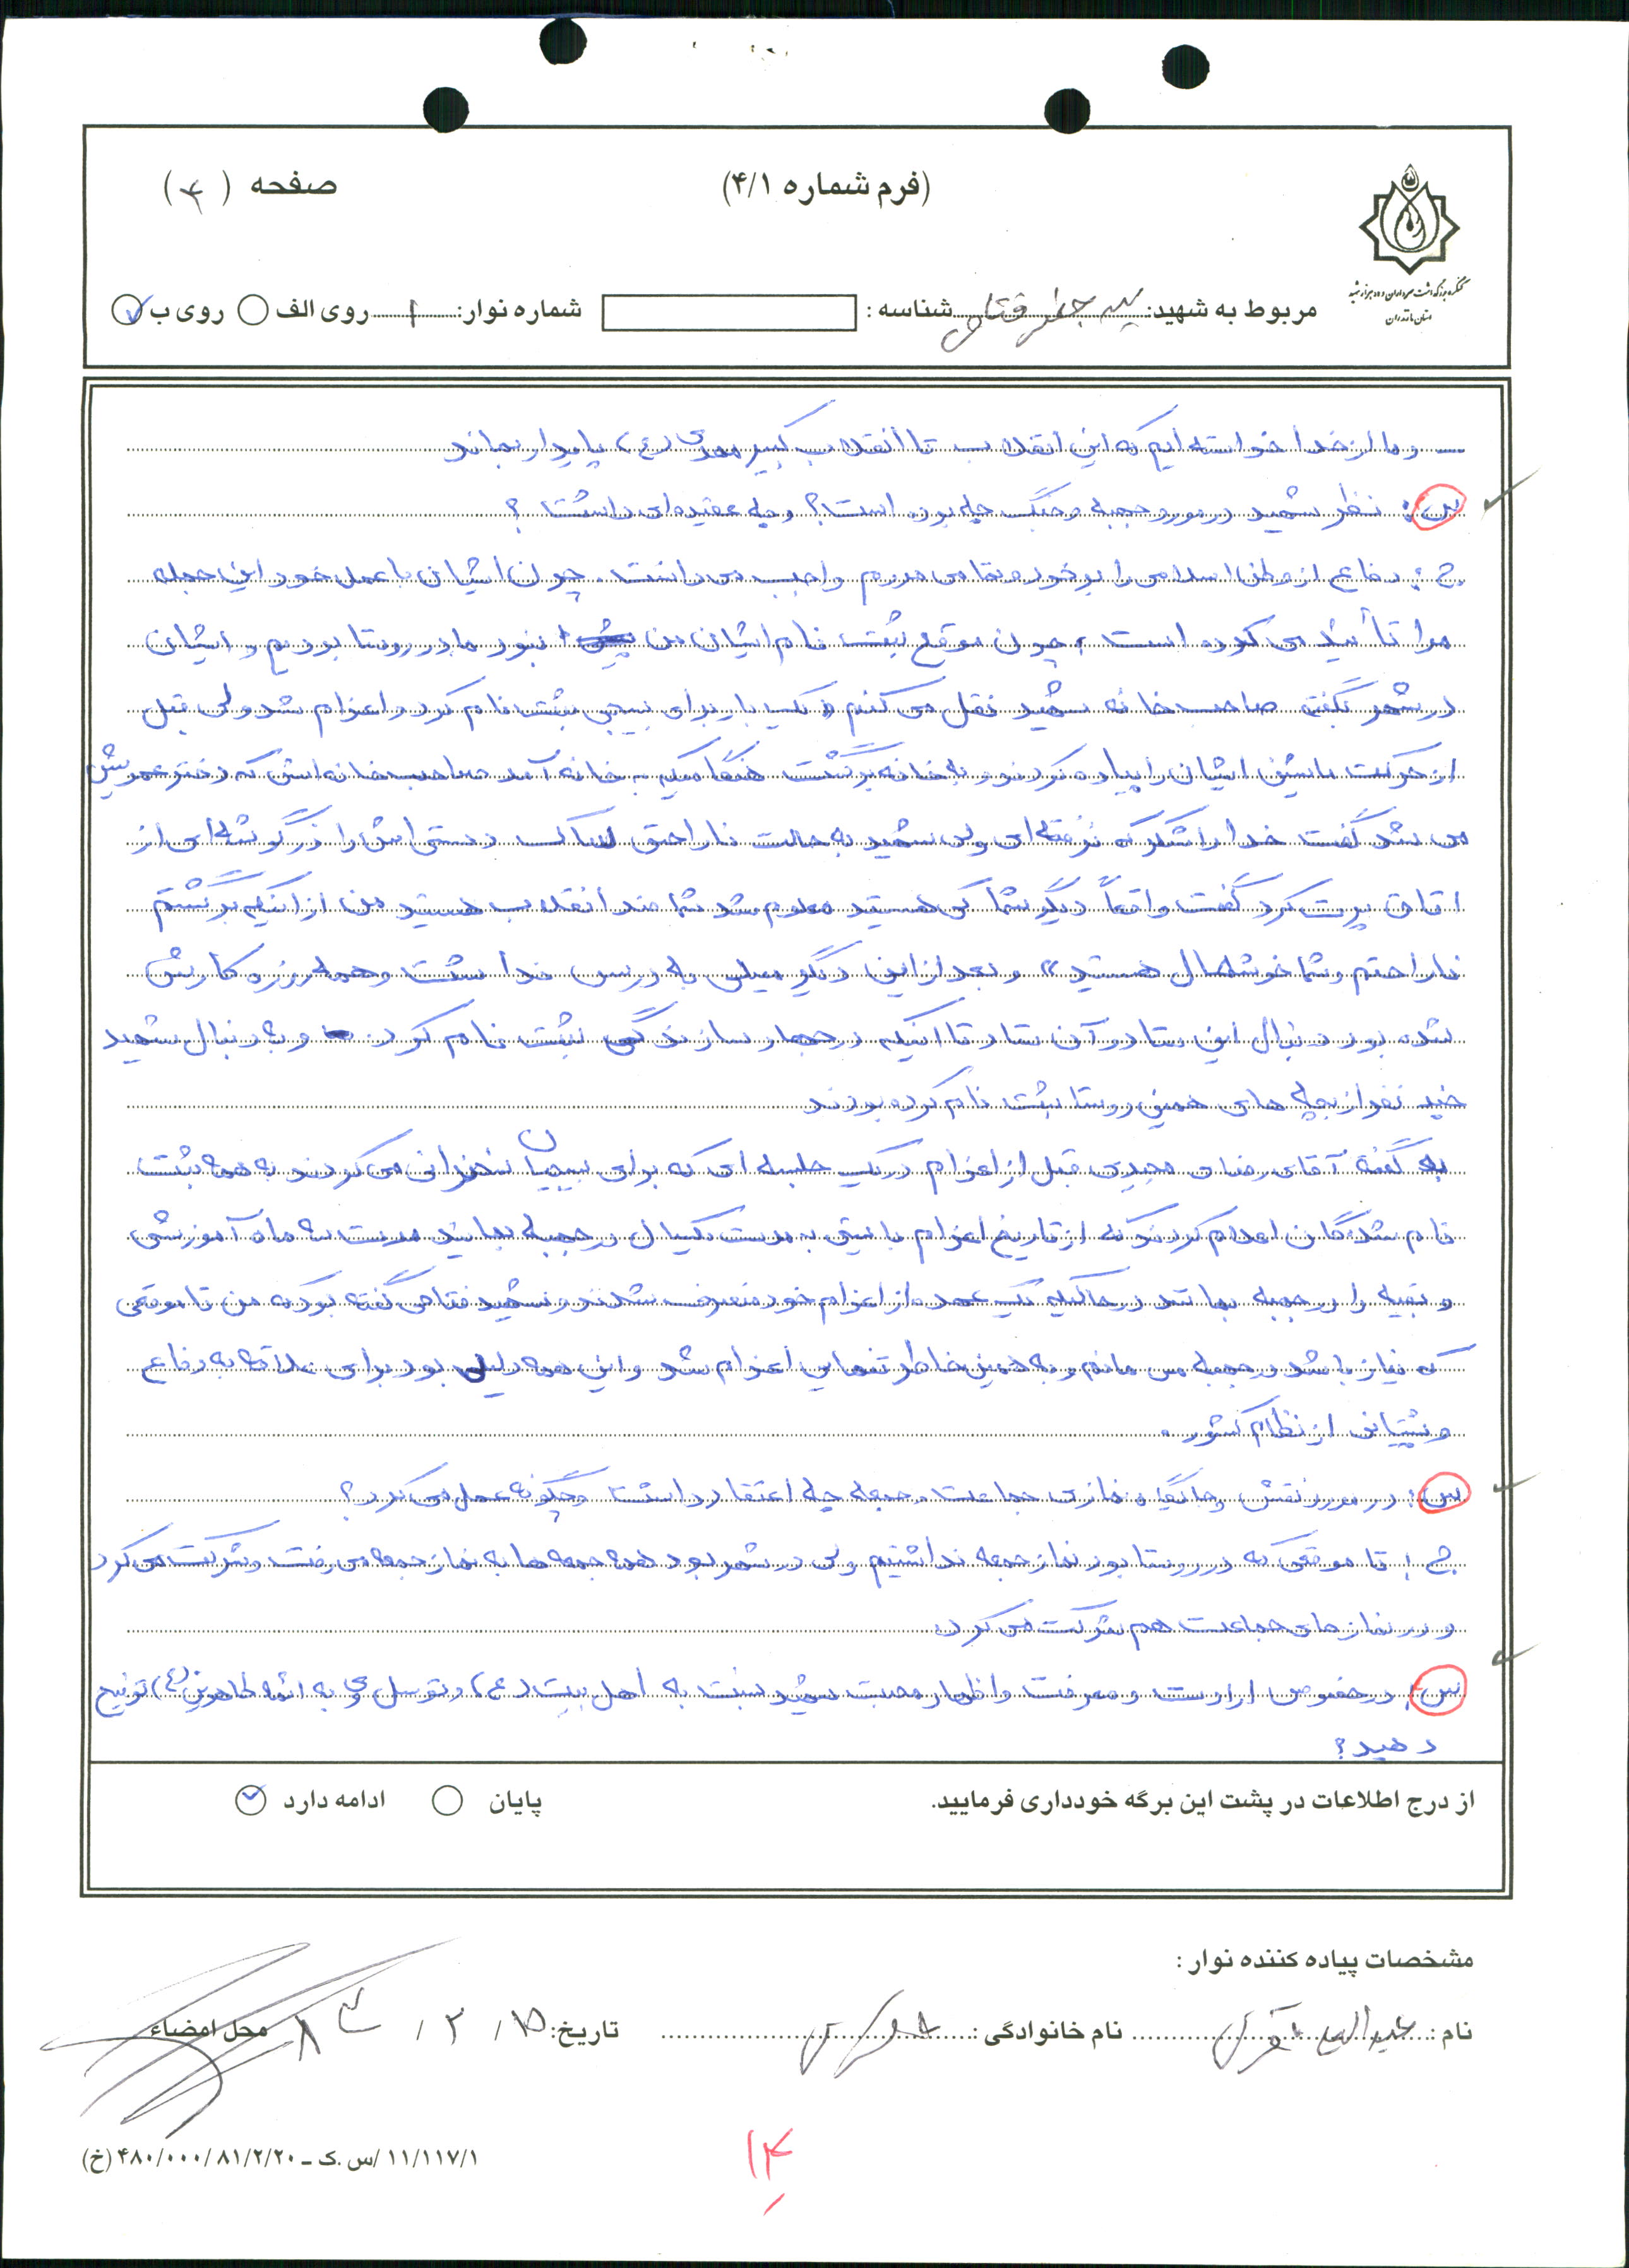 (فرم شماره ۴/۱)
صفحه (۴)
کنگره بزرگداشت سرداران و ده هزار شهید
استان مازندران
مربوط به شهید: سید جعفر فتاحی شناسه : شماره نوار: ۱ روی الف روی ب
وما از خدا خواسته ایم که این انقلاب تا انقلاب کبیر مهدی (ع) پایدار بماند
س: نظر شهید در مورد جبهه و جنگ چه بوده است؟ و چه عقیده ای داشت ؟
ج: دفاع از وطن اسلامی را بر خود و تمامی مردم واجب می دانست. چون ایشان با عمل خود این جمله
مرا تأئید می کرده است، چون موقع ثبت نام ایشان من نبود ما در روستا بودیم و ایشان
در شهر بگفته صاحب خانه شهید نقل می کنم « یک بار برای بسیج ثبت نام کرد و اعزام شد ولی قبل
از حرکت ماشین ایشان را پیاده کردند و به خانه برگشت هنگامیکه به خانه آمد صاحب خانه اش که دختر عمویش
می شد گفت خدا را شکر که نرفته ای ولی شهید به حالت ناراحتی ساک دستی اش را در گوشه ای از
اتاق پرت کرد گفت واقعاً دیگر شما کی هستید معلوم شد شما ضد انقلاب هستید من از اینکه برگشتم
ناراحتم و شما خوشحال هستید» و بعد از این دیگر میلی به درس نداشت و همه روزه کارش
شده بود دنبال این ستاد و آن ستاد تا اینکه در جهاد سازندگی ثبت نام کرد. و به دنبال شهید
چند نفر از بچه های همین روستا ثبت نام کرده بودند
به گفته آقای رضای مجیدی قبل از اعزام در یک جلسه ای که برای بسیجیان سخنرانی می کردند به همه ثبت
نام شدگان اعلام کردند که از تاریخ اعزام بایستی به مدت یکسال در جبهه بمانید مدت سه ماه آموزشی
و بقیه را در جبهه بمانند در حالیکه یک عده از اعزام خود منصرف شدند و شهید فتاحی گفته بود که من تا موقعی
که نیاز باشد در جبهه می مانم و به همین خاطر تنهایی اعزام شد و این همه دلیل بود برای علاقه به دفاع
و پشتیبانی از نظام کشور.
س: در مورد نقش و جایگاه نمازی جماعت و جمعه چه اعتقاد داشت و چگونه عمل می کرد؟
ج: تا موقعی که در روستا بود نماز جمعه نداشتیم ولی در شهر بود همه جمعه ها به نماز جمعه می رفت و شرکت می کرد
و در نماز های جماعت هم شرکت می کرد.
س: در خصوص ارادت و معرفت و اظهار محبت شهید نسبت به اهل بیت (ع) و توسل وی به ائمه طاهرین (ع) توضیح
دهید؟
از درج اطلاعات در پشت این برگه خودداری فرمایید. پایان ادامه دارد
مشخصات پیاده کننده نوار :
نام : نام خانوادگی : تاریخ: ۱۵ / ۲ / ۸۳ محل امضاء
۱۴
۱۱/۱۱۷/۱ /س .ک ـ ۴۸۰/۰۰۰/۸۱/۲/۲۰ (خ)